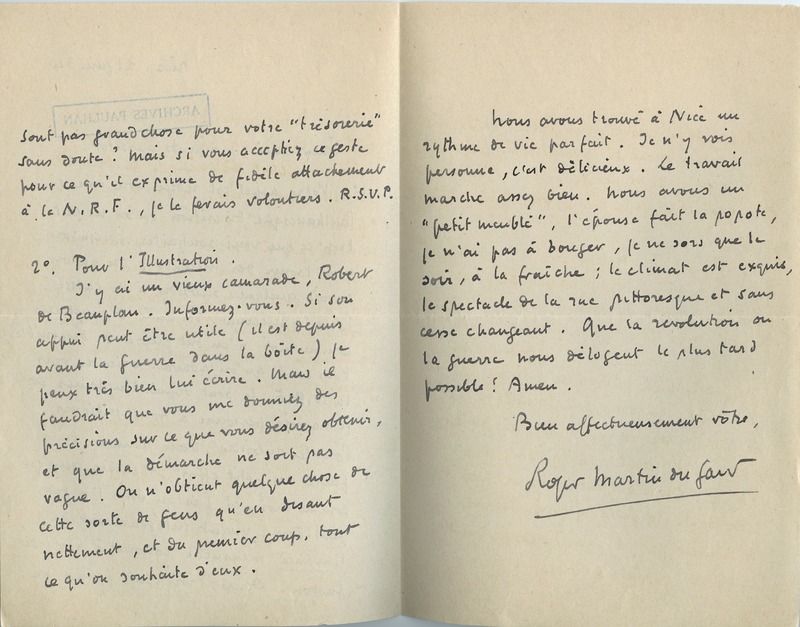 sont pas grand chose pour votre "trésorerie"
sans doute ? Mais si vous acceptiez ce geste
pour ce qu'il exprime de fidèle attachement
à la N.R.F., je le ferais volontiers. R.S.V.P.
2°. Pour l'Illustration.
J'y ai un vieux camarade, Robert
de Beauplan. Informez-vous. Si son
appui peut être utile (il est depuis
avant la guerre dans la boîte) je
peux très bien lui écrire. Mais il
faudrait que vous me donniez des
précisions sur ce que vous désirez obtenir,
et que la démarche ne soit pas
vague. On n'obtient quelque chose de
cette sorte de gens qu'en disant
nettement, et du premier coup, tout
ce qu'on souhaite d'eux.
ARCHIVES PAULHAN
Nous avons trouvé à Nice un
rythme de vie parfait. Je n'y vois
personne, c'est délicieux. Le travail
marche assez bien. Nous avons un
"petit meublé", l'épouse fait la popote,
je n'ai pas à bouger, je ne sors que le
soir, à la fraîche ; le climat est exquis,
le spectacle de la rue pittoresque et sans
cesse changeant. Que la révolution ou
la guerre nous délogent le plus tard
possible ! Amen.
Bien affectueusement vôtre,
Roger Martin du Gard